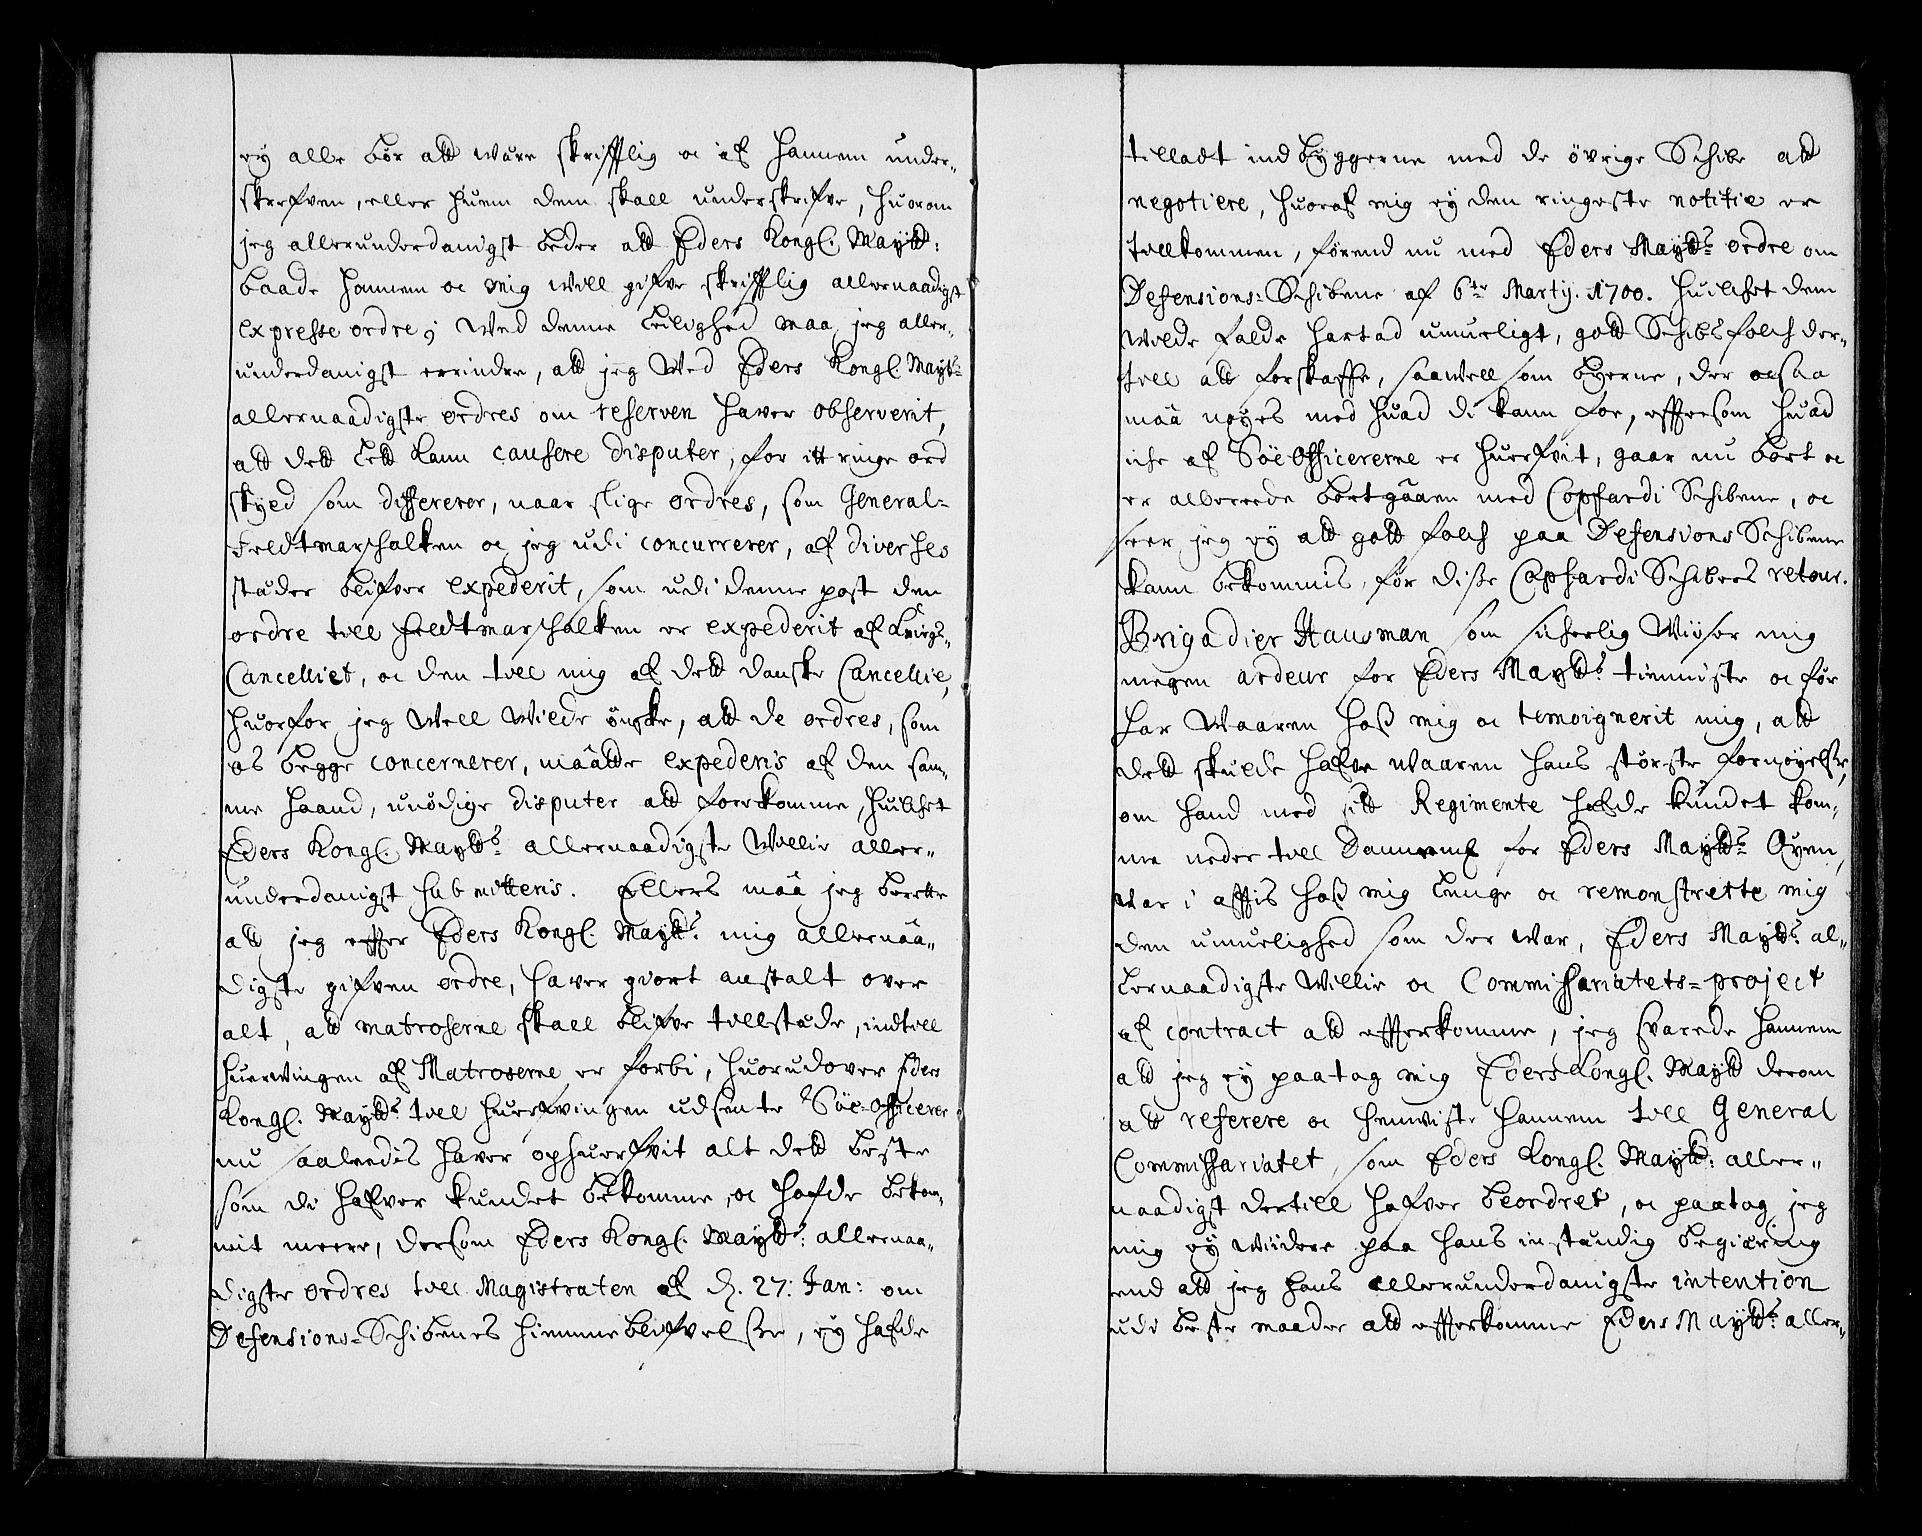 ey alle bør att være skrifftlig oc af hannem under-
skrefven, eller huem dem skall underskrifve, huorom
jeg allerunderdanigst beder att Eders Kongl. Maytt:
baade hannem oc mig vill gifve skrifftlig allernaadigst
expresse ordre; Ved denne Leilighed maa jeg aller-
underdanigst erindre, att jeg Ved Eders Kongl. Mayts
allernaadigste ordres om reserven haver observerit,
att dett Lett kann causere disputer, for itt ringe ord
skyld som differerer, naar slige ordres, som General-
Feldtmarschalken oc jeg udi concurrerer, af diverses
stæder blifver expederit, som udi denne post den
ordre till Feldtmarschalken er expederit af Krigs-
Cancelliet, oc den till mig af dett danske Cancellie,
huorfor jeg Vell Vilde ønske, att de ordres, som
os begge concernerer, maatte expederis af den sam-
me haand, unødige disputer att forekomme, huilchet
Eders Kongl. Maytts allernaadigste Villie aller-
underdanigst submitteris. Ellers maa jeg berette
att jeg effter Eders Kongl. Maytts mig allernaa-
digste gifven ordre, haver giort anstalt over
alt, att matroserne skall blifve tillstæde, indtill
huervingen af Matroserne er forbi, huorudover Eders
Kongl. Maytts till huerfvingen udsente Søe-Officerer
nu saaledis haver ophuerfvit alt dett beste
som di hafver kundet bekomme, oc hafde bekom-
mit meere, dersom Eders Kongl. Maytts: allernaa-
digste ordres till Magistraten af d. 27: Jan: om
Defensions-Schibenes hiemmeblifvelse, ey hafde
tilladt indbyggerne med de øvrige Schibe att
negotiere, huoraf mig ey den ringeste notitie er
tillkommen, førend nu med Eders Maytts ordre om
Defensions-Schibene af 6te Martij. 1700. huilchet dem
vilde falde hartad umueligt, gott Schibsfolch der-
till att forskaffe, saavell som byerne, der ocsaa
maa nøyes med huad di kann for, effersom huad
iche af Søe Officererne er huerfvit, gaar nu bort oc
er allereede bortgaaen med Copfardi Schibene, oc
seer jeg ey att gott folch paa Defensions Schibene
kann bekommis, før disse Copfardi Schibers retour.
Brigadier Hausman som sicherlig Viiser mig
megen ardeur for Eders Maytts tienniste oc før
har Vaaren hos mig oc temoignerit mig, att
dett skulde hafve vaaren hans største fornøyelse,
om hand med sitt Regimente hafde kundet kom-
me neder till Dannemk for Eders Maytts Øyen,
var i afftis hos mig Lenge oc remonstrette mig
den umuelighed som der var, Eders Maytts al-
lernaadigste Villie oc Commissariatets-project
af contract att effterkomme, jeg svarede hannem
att jeg ey paatog mig Eders Kongl. Maytt derom
att referere oc henviste hannem till General
Commissariatet, som Eders Kongl. Maytt: aller-
naadigst dertill hafver beordret, oc paatog jeg
mig ey Viidere paa hans instændig begiæring
end att jeg hans allerunderdanigste intention
udi beste maader att effterkomme Eders Maytts aller-